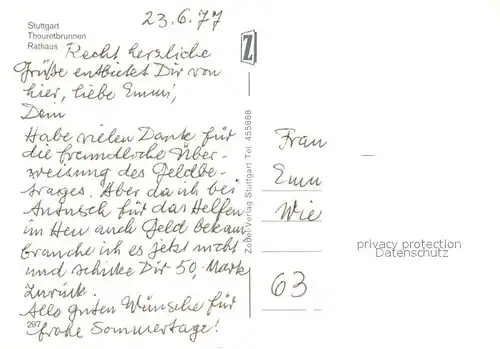 Stuttgart
Thouretbrunnen
Rathaus
23.6.77
Recht herzliche
Grüße entbietet Dir von
hier, liebe Emmi,
Dein
Habe vielen Dank für
die freundliche Über-
weisung des Geldbe-
trages. Aber da ich bei
für das Helfen
im Heu auch Geld bekam
brauche ich es jetzt nicht
und schicke Dir 50,- Mark
zurück.
Alls guten Wünsche für
frohe Sommertage!
297
Zobel-Verlag Stuttgart Tel. 455888
Z
Frau
Emm
Wie
63
privacy protection
Datenschutz